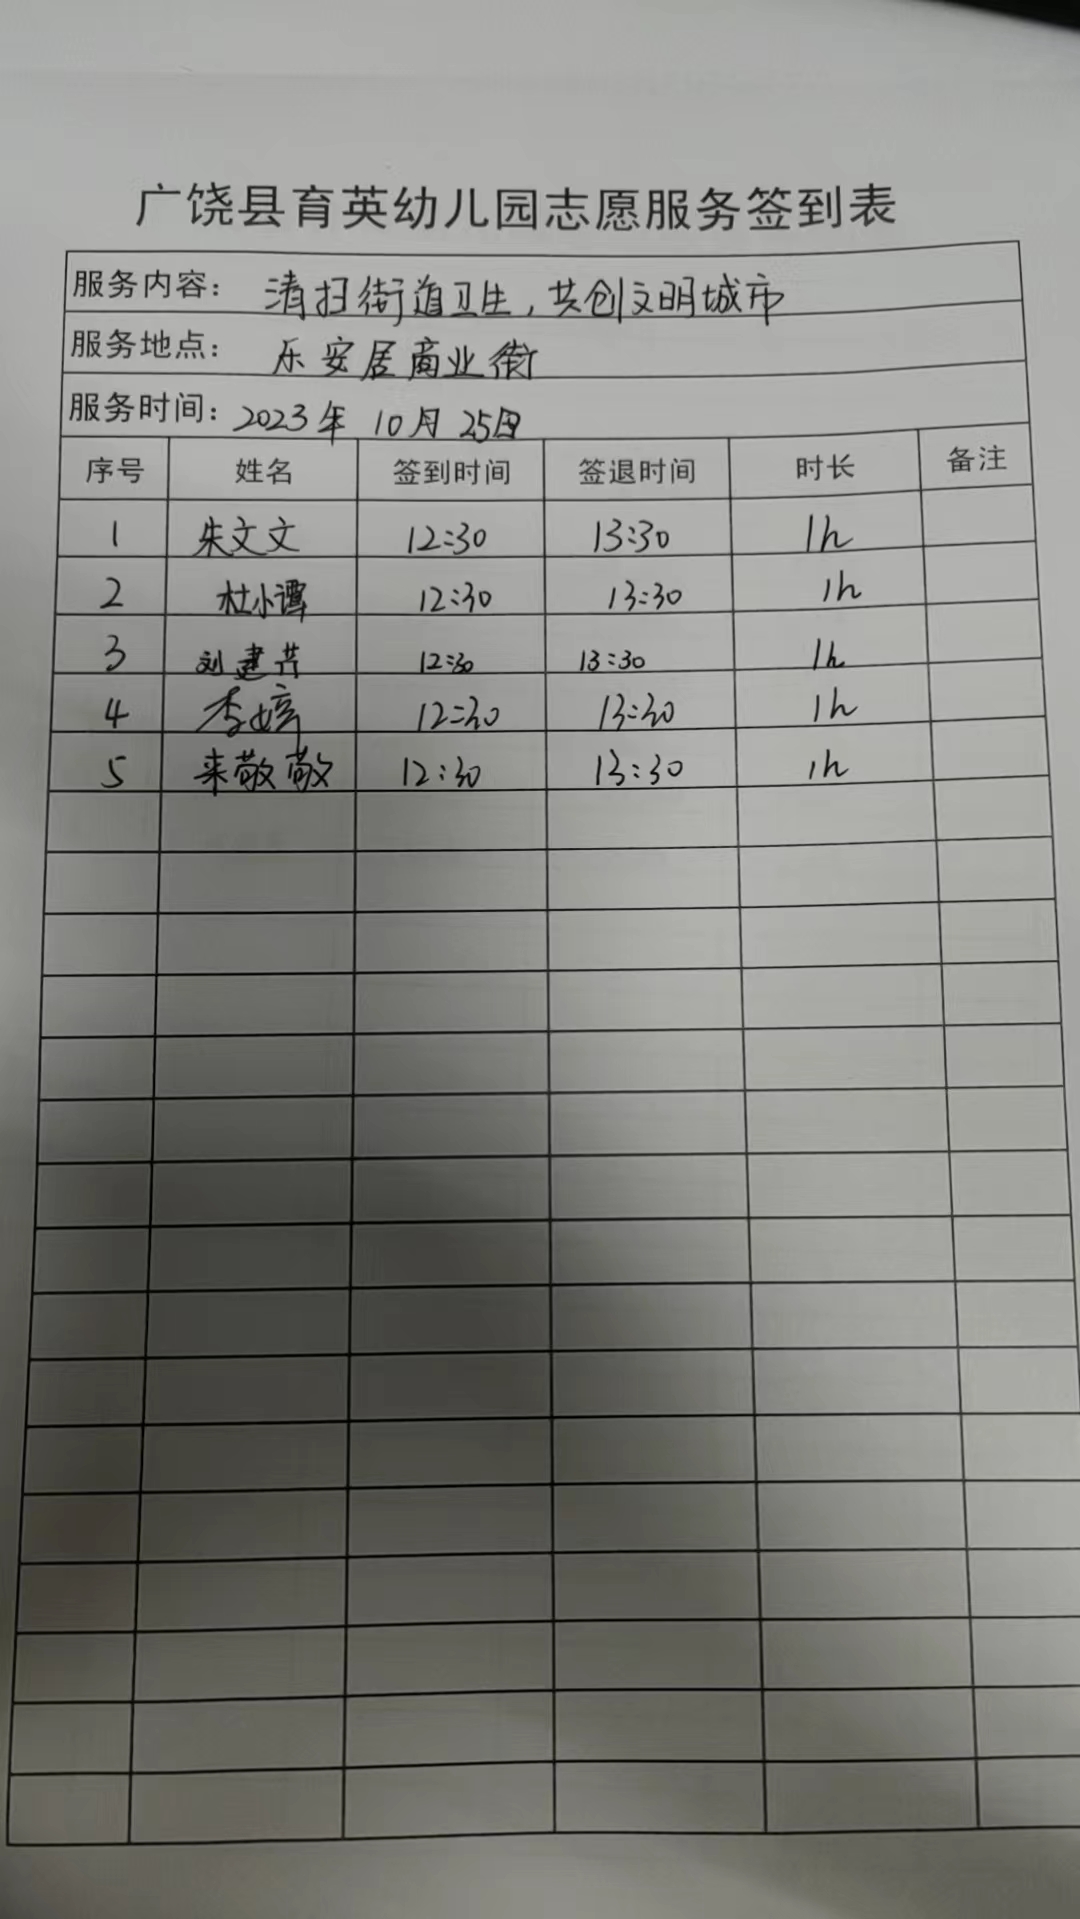 广饶县育英幼儿园志愿服务签到表
服务内容： 清扫街道卫生，共创文明城市
服务地点： 乐安居商业街
服务时间：2023年 10月 25日
序号 姓名 签到时间 签退时间 时长 备注
1 朱文文 12:30 13:30 1h
2 杜小谭 12:30 13:30 1h
3 刘建芹 12:30 13:30 1h
4 李婷 12:30 13:30 1h
5 来敬敬 12:30 13:30 1h